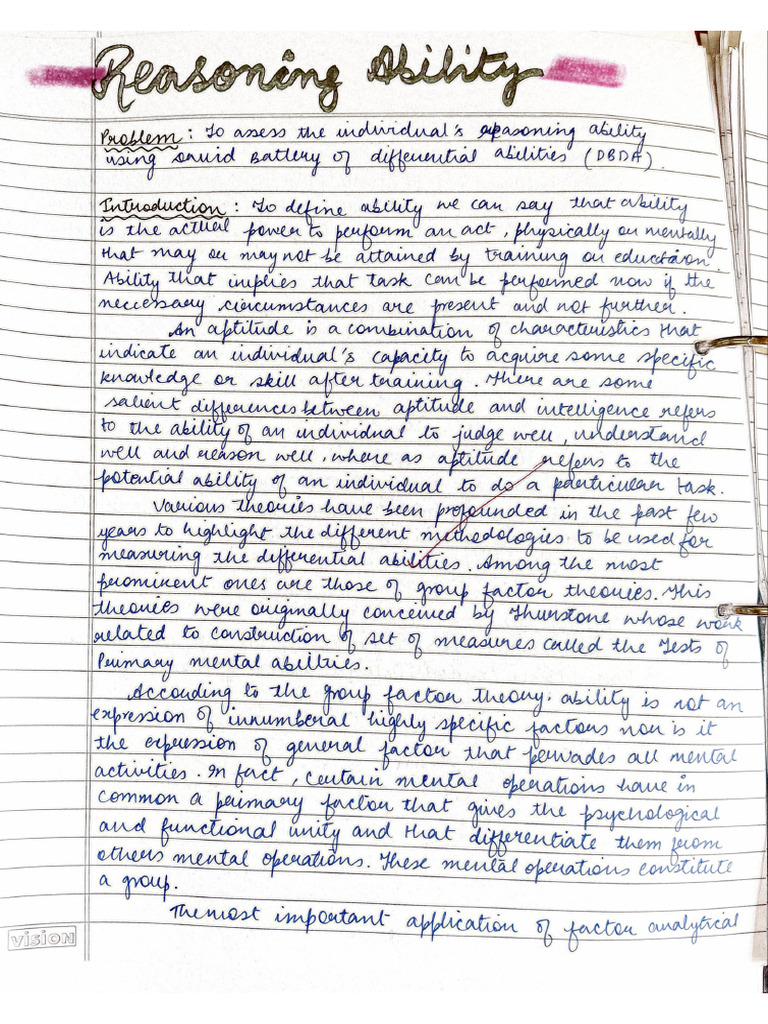 Reasoning Ability
Problem : To assess the individual's reasoning ability
using David Battery of differential abilities (DBDA).
Introduction : To define ability we can say that ability
is the actual power to perform an act, physically or mentally
that may or may not be attained by training or education.
Ability that implies that task can be performed now if the
necessary circumstances are present and not further.
An aptitude is a combination of characteristics that
indicate an individual's capacity to acquire some specific
knowledge or skill after training. There are some
salient differences between aptitude and intelligence refers
to the ability of an individual to judge well, understand
well and reason well, where as aptitude refers to the
potential ability of an individual to do a particular task.
Various theories have been profounded in the past few
years to highlight the different methodologies to be used for
measuring the differential abilities. Among the most
prominent ones are those of group factor theories. This
theories were originally conceived by Thurstone whose work
related to construction of set of measures called the Tests of
Primary mental abilities.
According to the group factor theory, ability is not an
expression of innumberal highly specific factors nor is it
the expression of general factor that pervades all mental
activities. In fact, certain mental operations have in
common a primary factor that gives the psychological
and functional unity and that differentiate them from
others mental operations. These mental operations constitute
a group.
The most important application of factor analytical
vision